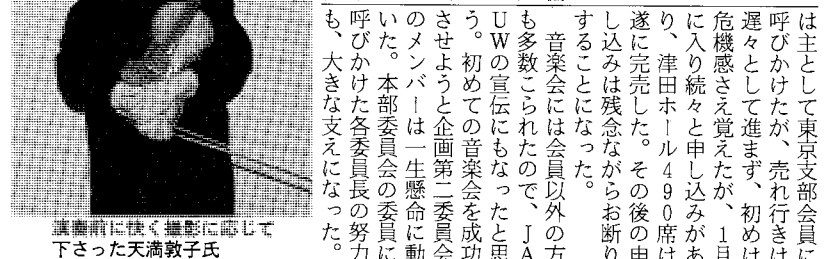 は主として東京支部会員に
呼びかけたが、売れ行きは
遅々として進まず、初めは
危機感さえ覚えたが、1月
に入り続々と申し込みがあ
り、津田ホール490席は
遂に完売した。その後の申
し込みは残念ながらお断り
することになった。
音楽会には会員以外の方
も多数こられたので、JA
UWの宣伝にもなったと思
う。初めての音楽会を成功
させようと企画第二委員会
のメンバーは一生懸命に動
いた。本部委員会の委員に
呼びかけた各委員長の努力
も、大きな支えになった。
演奏前に快く撮影に応じて
下さった天満敦子氏